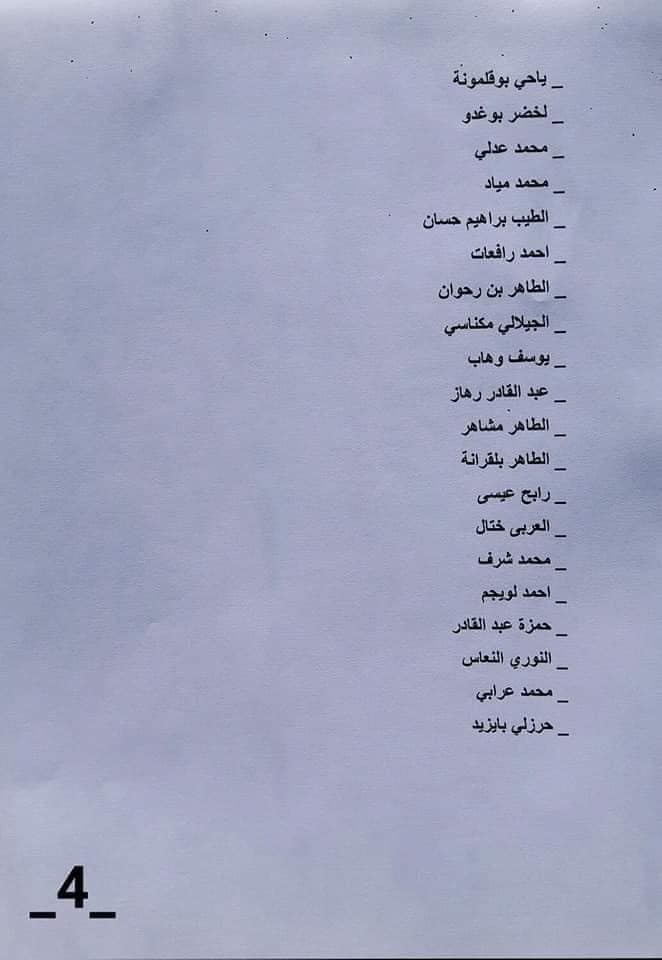 _ ياحي بوقلمونة
_ لخضر بوغدو
_ محمد عدلي
_ محمد مياد
_ الطيب براهيم حسان
_ احمد رافعات
_ الطاهر بن رحوان
_ الجيلالي مكناسي
_ يوسف وهاب
_ عبد القادر رهاز
_ الطاهر مشاهر
_ الطاهر بلقرانة
_ رابح عيسى
_ العربى ختال
_ محمد شرف
_ احمد لويجم
_ حمزة عبد القادر
_ النوري النعاس
_ محمد عرابي
_ حرزلي بايزيد
_4_